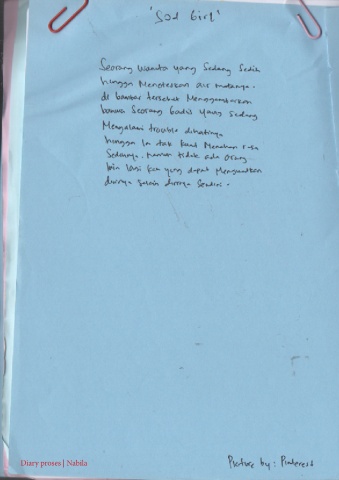 'Sad Girl'
Seorang wanita yang sedang sedih
hingga meneteskan air matanya.
di gambar tersebut menggambarkan
bahwa seorang gadis yang sedang
mengalami trouble dihatinya
hingga ia tak kuat menahan rasa
sedihnya. namun tidak ada orang
lain lagi yang dapat menguatkan
dirinya selain dirinya sendiri.
Picture by : Pinterest
Diary proses | Nabila